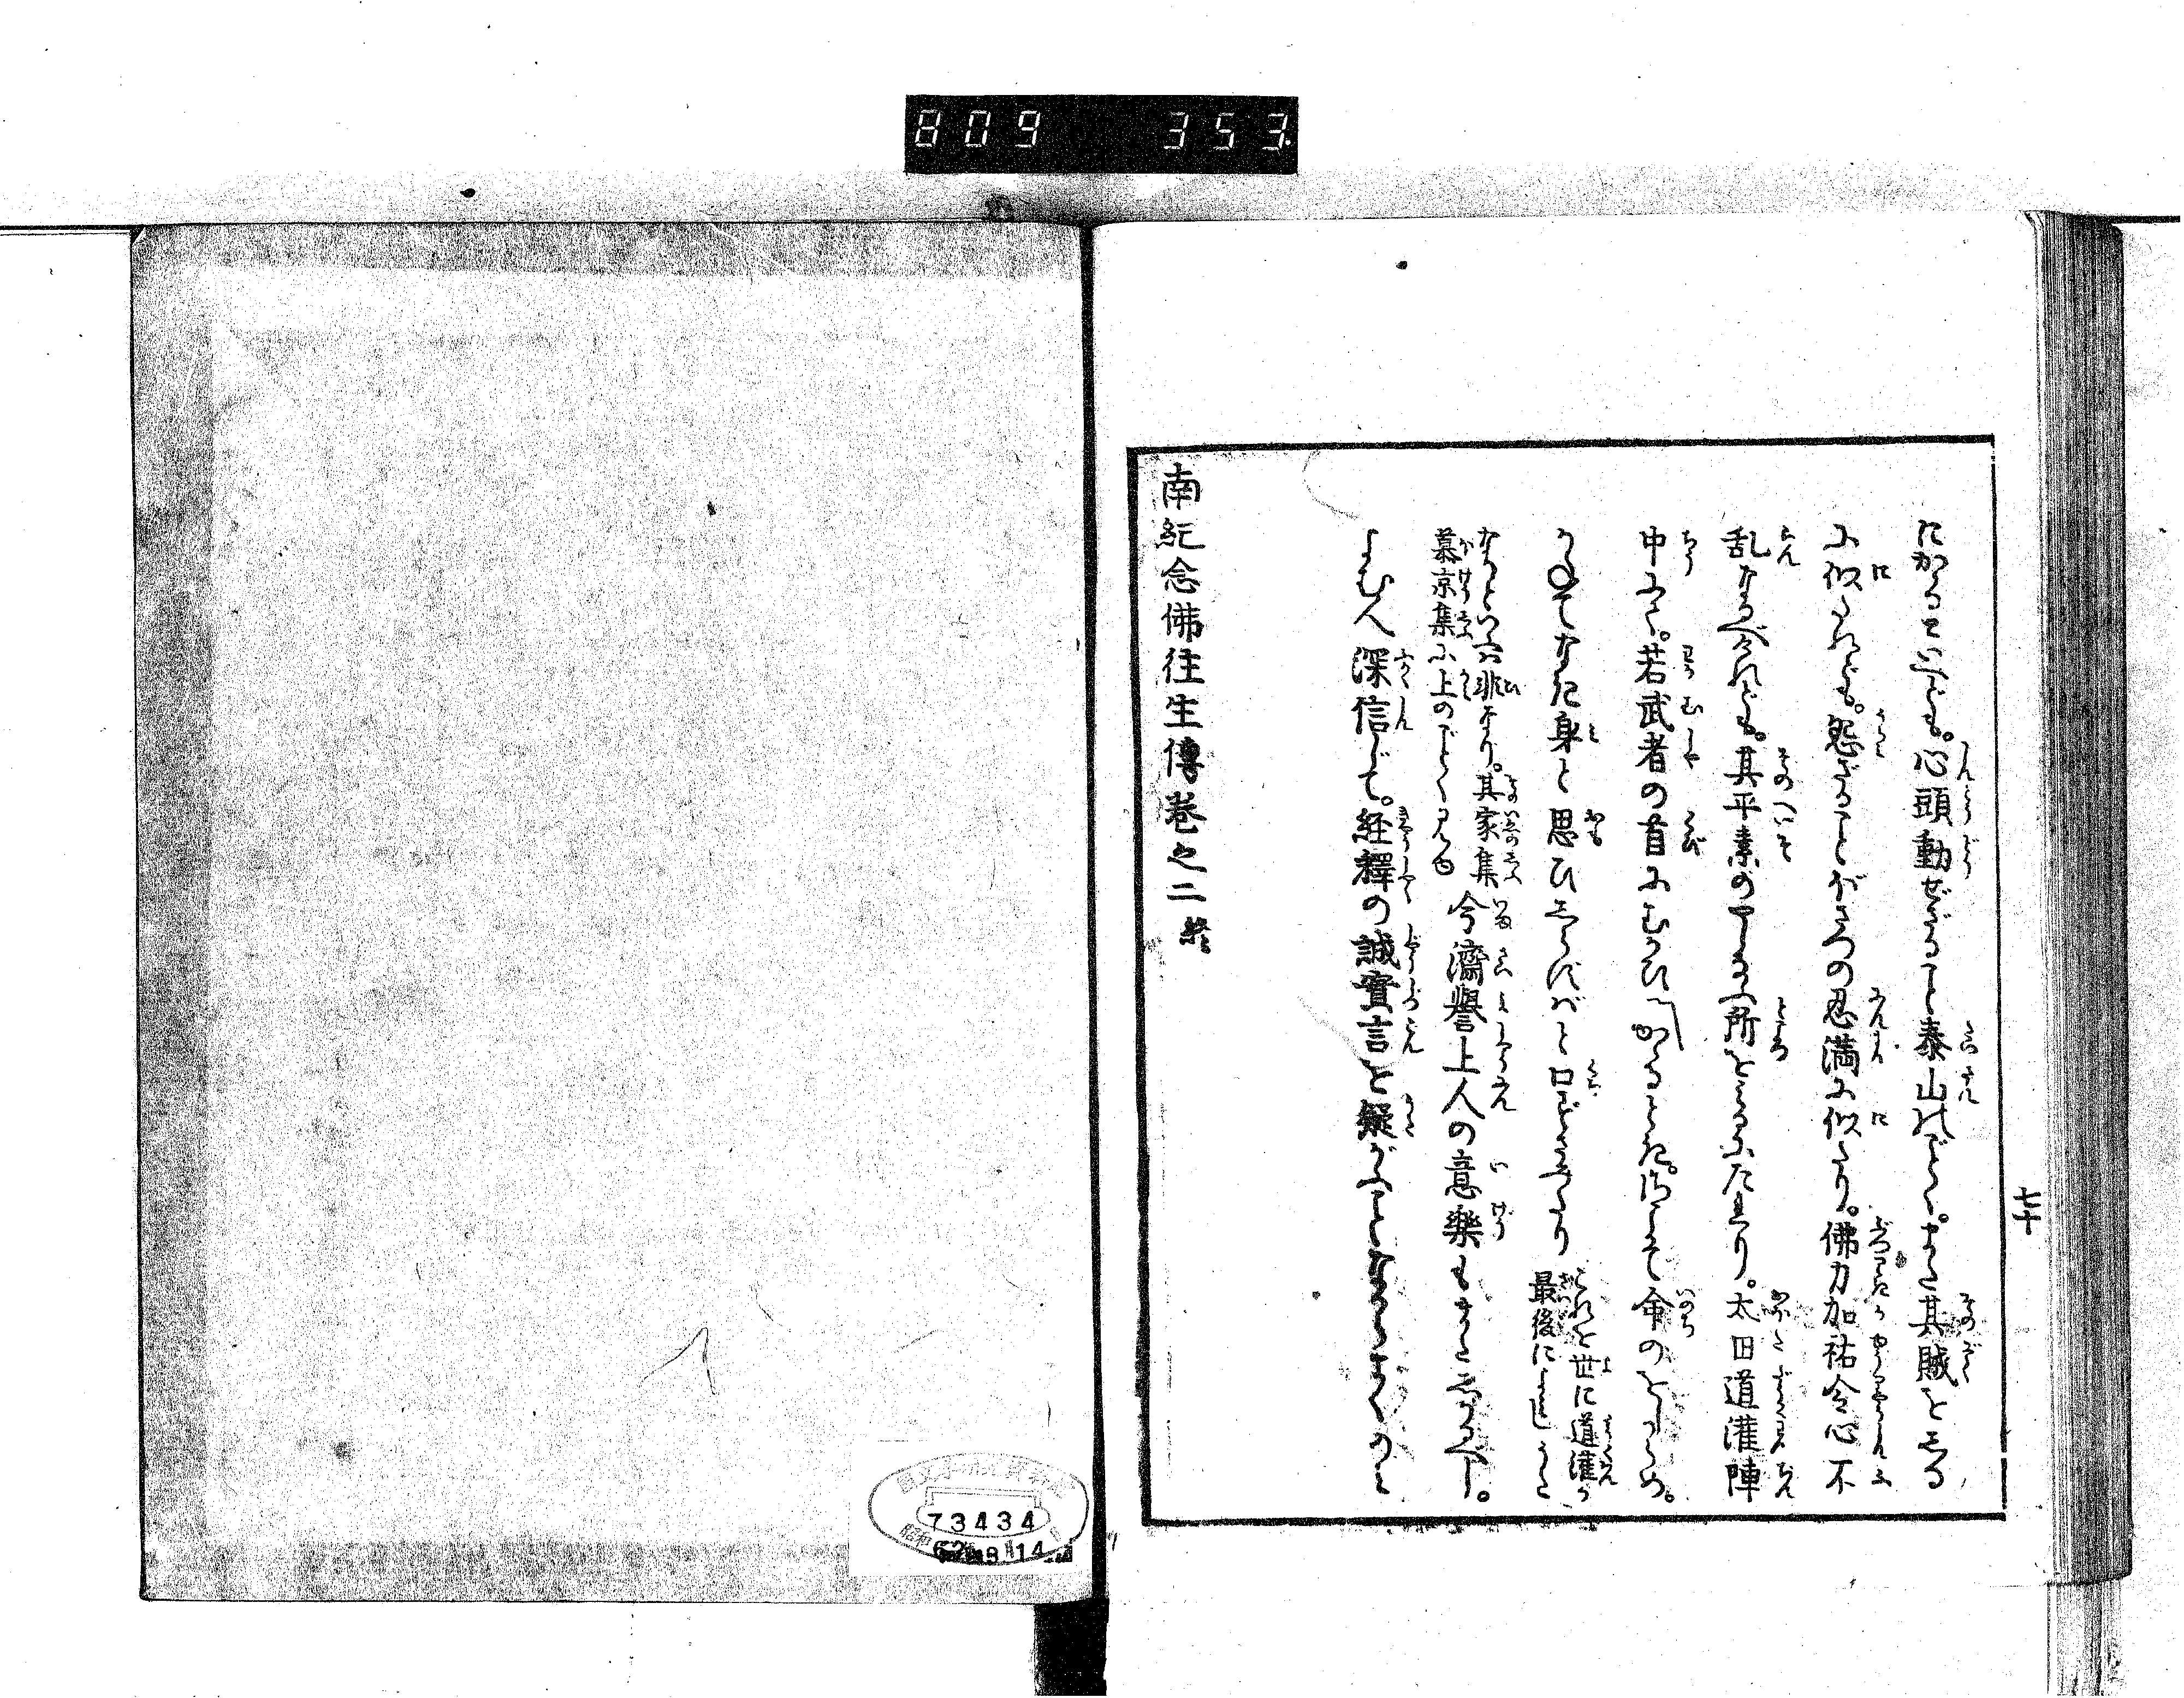 809 353
にかゝるといへども。心頭動ぜざること泰山のごとく。また其賊をしる
に似たれども。怨ざることぼさつの忍満に似たり。佛力加祐令心不
乱なるべけれども。其平素のやしなふ所をしるにたれり。太田道灌陣
中にて。若武者の首にむかひ「かゝるとき。さこそ命のをしからめ。
かねてなき身と思ひしらずばと口ずさみたり これを世に道灌が最後によまれしうた
なりといふは非なり。其家集慕京集に上のごとく見ゆ 今濟譽上人の意樂もまたしかるべし。
よむ人深信じて。経釋の誠實言を疑がふことなかれ
南紀念佛往生傳巻之二終
七十
73434
昭和